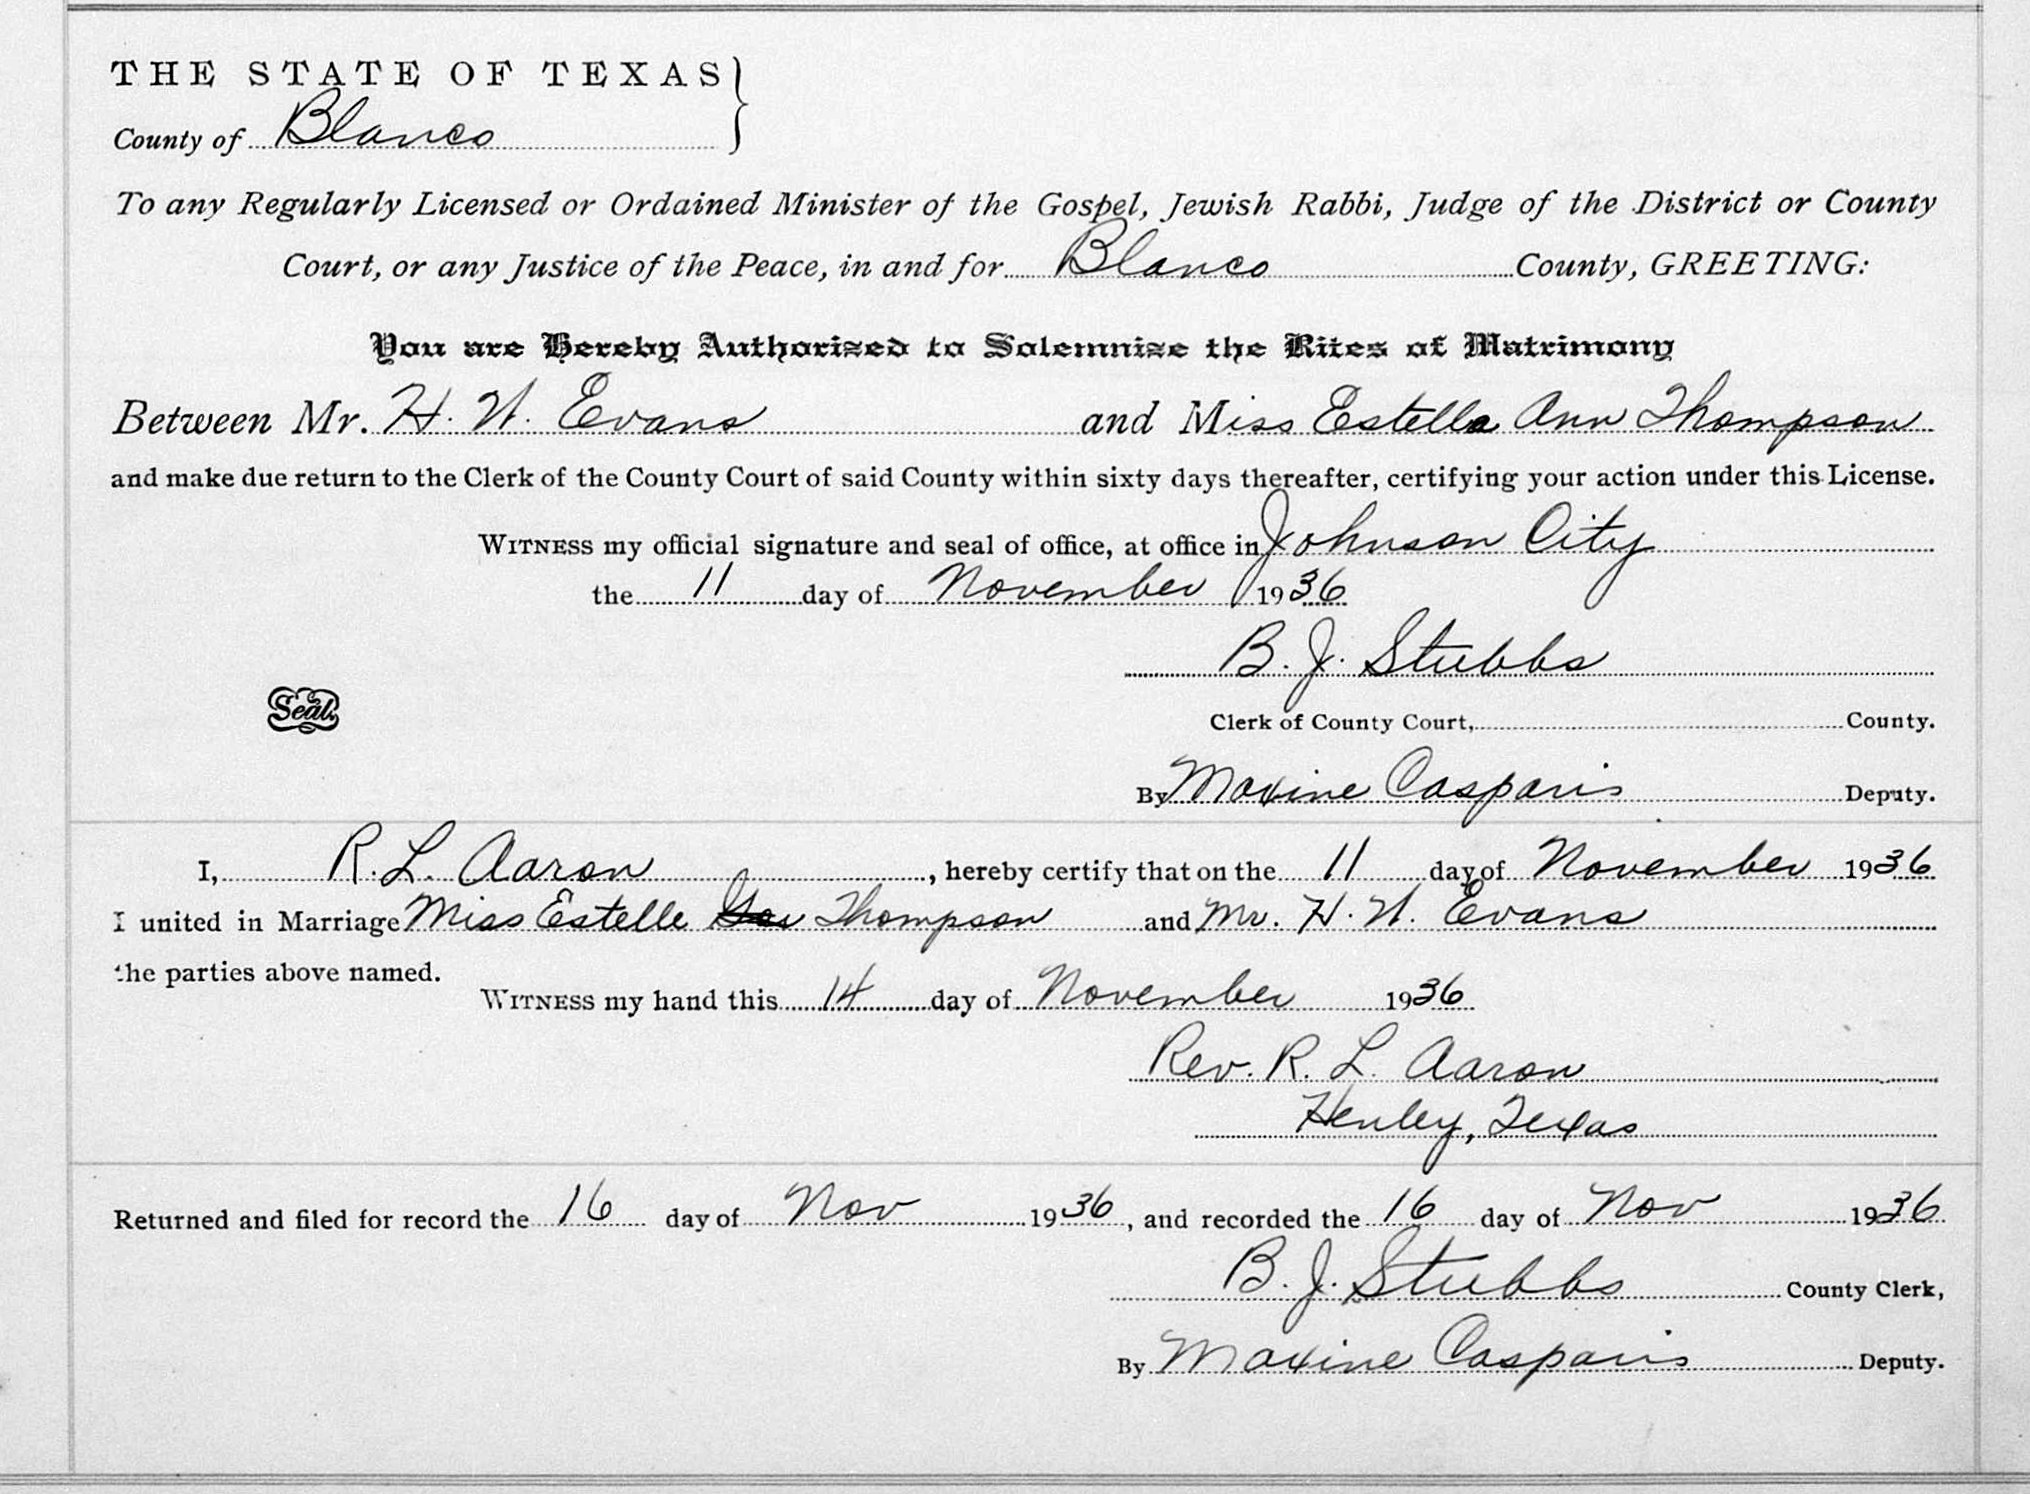 THE STATE OF TEXAS
County of Blanco
To any Regularly Licensed or Ordained Minister of the Gospel, Jewish Rabbi, Judge of the District or County
Court, or any Justice of the Peace, in and for Blanco County, GREETING:
You are Hereby Authorized to Solemnize the Rites of Matrimony
Between Mr. H. W. Evans and Miss Estella Ann Thompson
and make due return to the Clerk of the County Court of said County within sixty days thereafter, certifying your action under this License.
WITNESS my official signature and seal of office, at office in Johnson City
the 11 day of November 1936
B. J. Stubbs
Seal.
Clerk of County Court, County.
By Maxine Casparis Deputy.
I, R. L. Aaron, hereby certify that on the 11 day of November 1936
I united in Marriage Miss Estelle Thompson and Mr. H. W. Evans
the parties above named.
WITNESS my hand this 14 day of November 1936
Rev. R. L. Aaron
Henley, Texas
Returned and filed for record the 16 day of Nov 1936, and recorded the 16 day of Nov 1936
B. J. Stubbs County Clerk,
By Maxine Casparis Deputy.